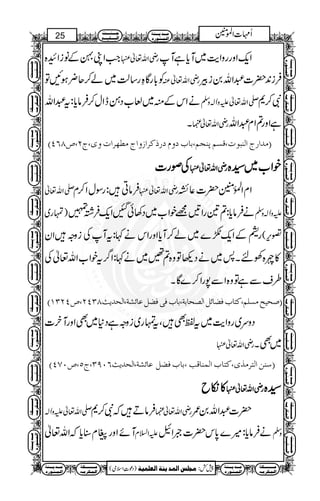 25
اُمہات المؤمنین
ایک اور روایت میں آیا ہے آپ رضی اللہ تعالیٰ عنہا جب اپنی بہن کے نوزائیدہ
فرزند حضرت عبداللہ بن زبیر رضی اللہ تعالیٰ عنہ کو بارگاہِ رسالت میں لے کر حاضر ہوئیں تو
نبی کریم صلی اللہ تعالیٰ علیہ والہ وسلم نے اس کے منہ میں لعاب دہن ڈال کر فرمایا: یہ عبداللہ
ہے اور تم ام عبداللہ رضی اللہ تعالیٰ عنہا۔
(مدارج النبوت،قسم پنجم،باب دوم درذکر ازواج مطہرات وی،ج۲،ص۴۶۸)
خواب میں سیدہ رضی اللہ تعالیٰ عنہا کی صورت
ام المؤمنین حضرت عائشہ رضی اللہ تعالیٰ عنہا فرماتی ہیں: رسول اکرم صلی اللہ تعالیٰ
علیہ والہ وسلم نے فرمایا: تم تین راتیں مجھے خواب میں دکھائی گئیں ایک فرشتہ تمہیں (تمہاری
تصویر) ریشم کے ایک ٹکڑے میں لے کر آیا اور اس نے کہا: یہ آپ کی زوجہ ہیں ان
کا چہرہ کھولئے۔ پس میں نے دیکھا تو وہ تم تھیں میں نے کہا: اگر یہ خواب اللہ تعالیٰ کی
طرف سے ہے تو وہ اسے پورا کرے گا۔
(صحیح مسلم،کتاب فضائل الصحابۃ،باب فی فضل عائشۃ،الحدیث۲۴۳۸،ص۱۳۲۴)
دوسری روایت میں یہ لفظ بھی ہیں، یہ تمہاری زوجہ ہے دنیا میں بھی اور آخرت
میں بھی۔ رضی اللہ تعالیٰ عنہا
(سنن الترمذی،کتاب المناقب ،باب فضل عائشۃ،الحدیث۳۹۰۶،ج۵،ص۴۷۰)
سیدہ رضی اللہ تعالیٰ عنہا کا نکاح
حضرت عبداللہ بن عمر رضی اللہ تعالیٰ عنہما فرماتے ہیں کہ نبی کریم صلی اللہ تعالیٰ علیہ والہ
وسلم نے فرمایا: میرے پاس حضرت جبرائیل علیہ السلام آئے اور پیغام سنایا کہ اللہ تعالیٰ
پیش کش: مجلس المدینۃ العلمیۃ (دعوت اسلامی)